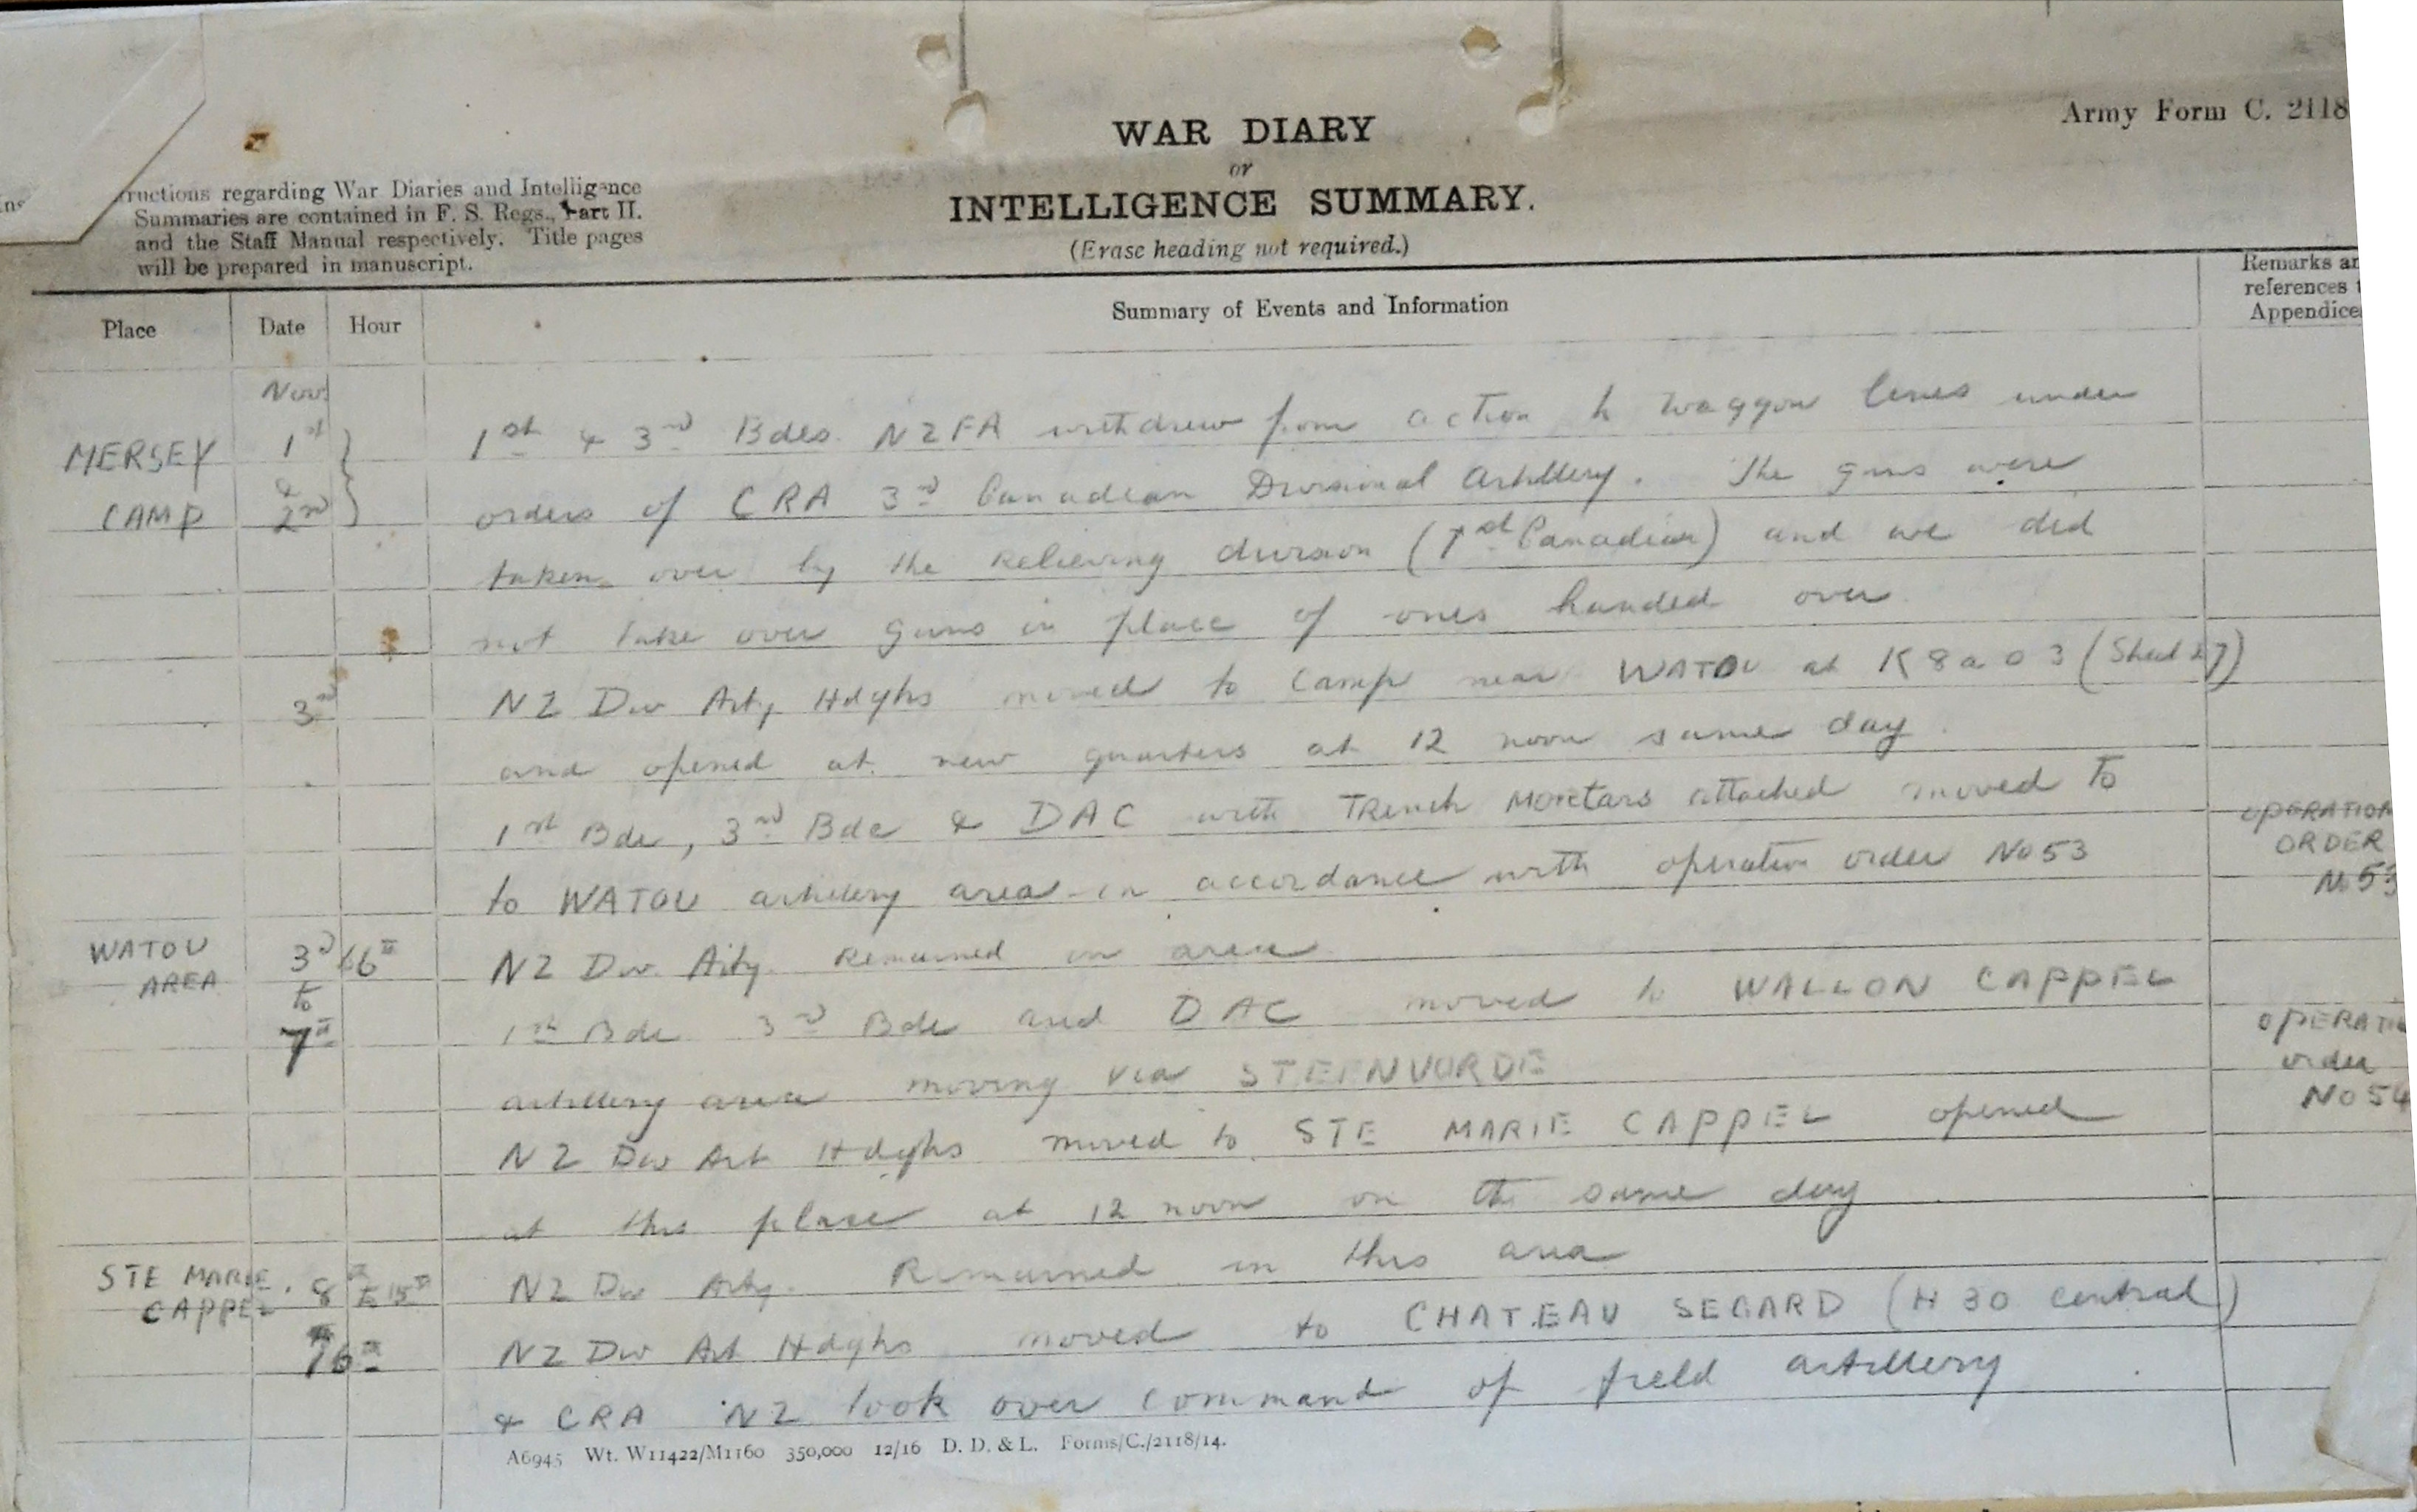 Army Form C. 2118
WAR DIARY
or
INTELLIGENCE SUMMARY.
(Erase heading not required.)
ructions regarding War Diaries and Intelligence
Summaries are contained in F. S. Regs., Part II.
and the Staff Manual respectively. Title pages
will be prepared in manuscript.
Place Date Hour Summary of Events and Information
Remarks an
references t
Appendice
Nov
MERSEY 1st 1st & 3rd Bdes. NZFA withdrew from action to waggon lines under
&
CAMP 2nd orders of CRA 3rd Canadian Divisional Artillery. The guns were
taken over by the relieving division (1st Canadian) and we did
not take over guns in place of ones handed over
3rd NZ Div Arty Hdqhs moved to camp near WATOU at K8a03 (Sheet 27)
and opened at new quarters at 12 noon same day.
1st Bde, 3rd Bde & DAC with Trench Mortars attached moved to
to WATOU artillery area in accordance with operation order No 53
OPERATION
ORDER
No 53
WATOU 3rd 6th NZ Div. Arty. Remained in area
AREA to
7th 1st Bde 3rd Bde and DAC moved to WALLON CAPPEL
artillery area moving via STEENVORDE
OPERATI
order
No 54
NZ Div Art Hdqhs moved to STE MARIE CAPPEL opened
at this place at 12 noon on the same day
STE MARIE. 8th to 15th NZ Div Arty. Remained in this area
CAPPEL
16th NZ Div Art Hdqhs moved to CHATEAU SEGARD (H 30 central)
& CRA NZ took over command of field artillery
A6945 Wt. W11422/M1160 350,000 12/16 D. D. & L. Forms/C./2118/14.